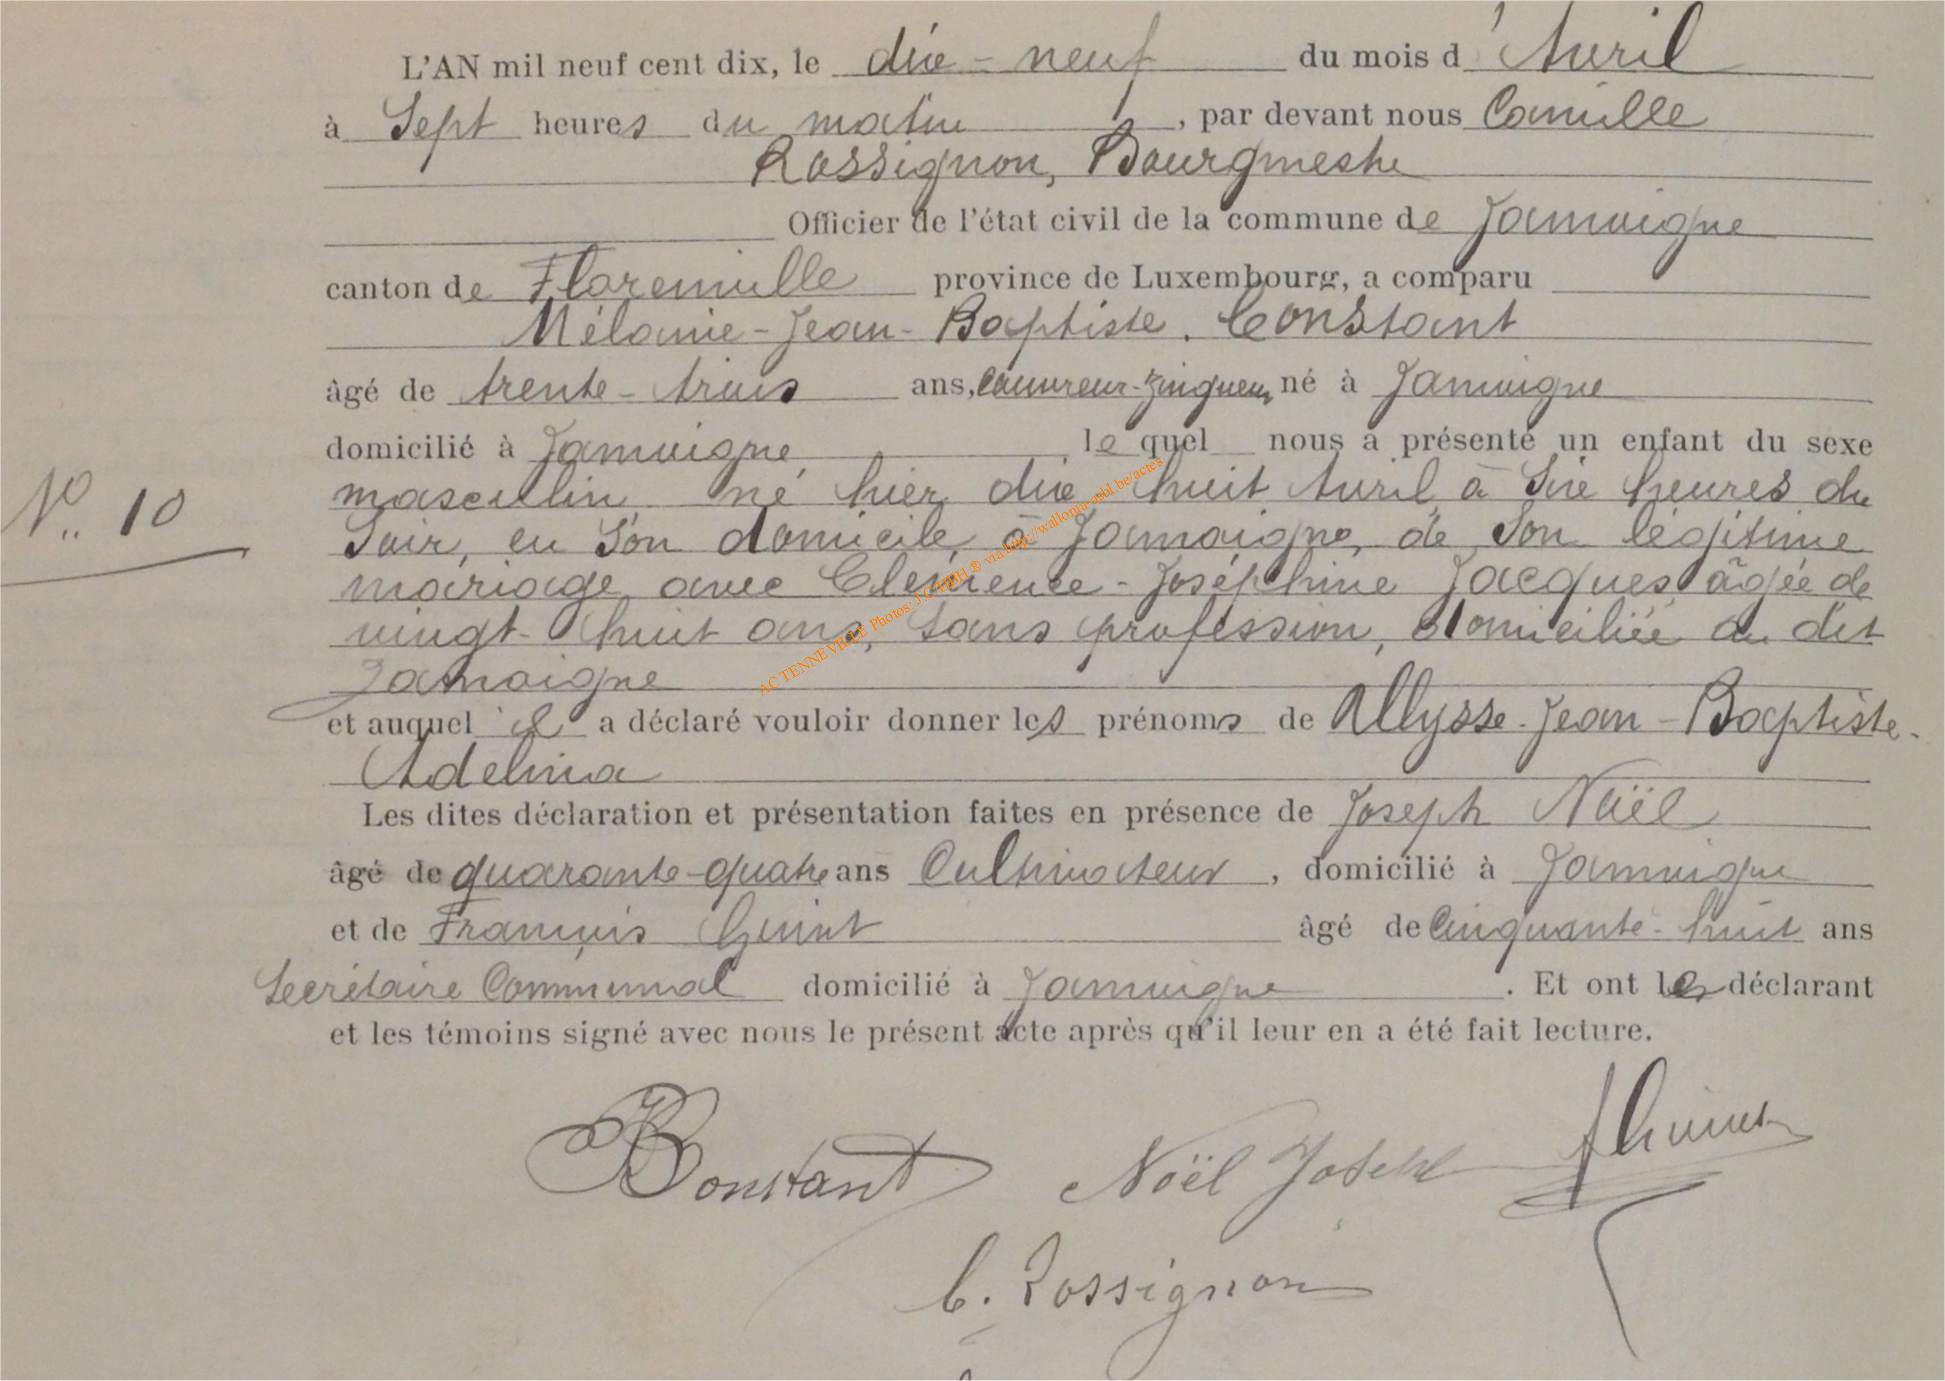 L'AN mil neuf cent dix, le dix-neuf du mois d'Avril
à Sept heures du matin, par devant nous Camille
Rossignon, Bourgmestre
Officier de l'état civil de la commune de Jamoigne
canton de Florenville province de Luxembourg, a comparu
Mélanie-Jean-Baptiste. Constant
âgé de trente-trois ans, Couvreur-Zingueur, né à Jamoigne
domicilié à Jamoigne lequel nous a présenté un enfant du sexe
masculin, né hier dix huit Avril, à Six heures du
Soir, en Son domicile, à Jamoigne, de Son légitime
N° 10
mariage avec Clémence-Joséphine Jacques, âgée de
vingt-huit ans, Sans profession, domiciliée au dit
Jamoigne
et auquel il a déclaré vouloir donner les prénoms de Ulysse-Jean-Baptiste-
Adelina
Les dites déclaration et présentation faites en présence de Joseph Noël
âgé de quarante-quatre ans Cultivateur, domicilié à Jamoigne
et de François âgé de Cinquante-huit ans
Secrétaire Communal domicilié à Jamoigne. Et ont les déclarant
et les témoins signé avec nous le présent acte après qu'il leur en a été fait lecture.
Constant Noël Joseph
C. Rossignon
AC TENNEVILLE Photos: J.C. HBH ® via http://wallonia-asbl.be/actes